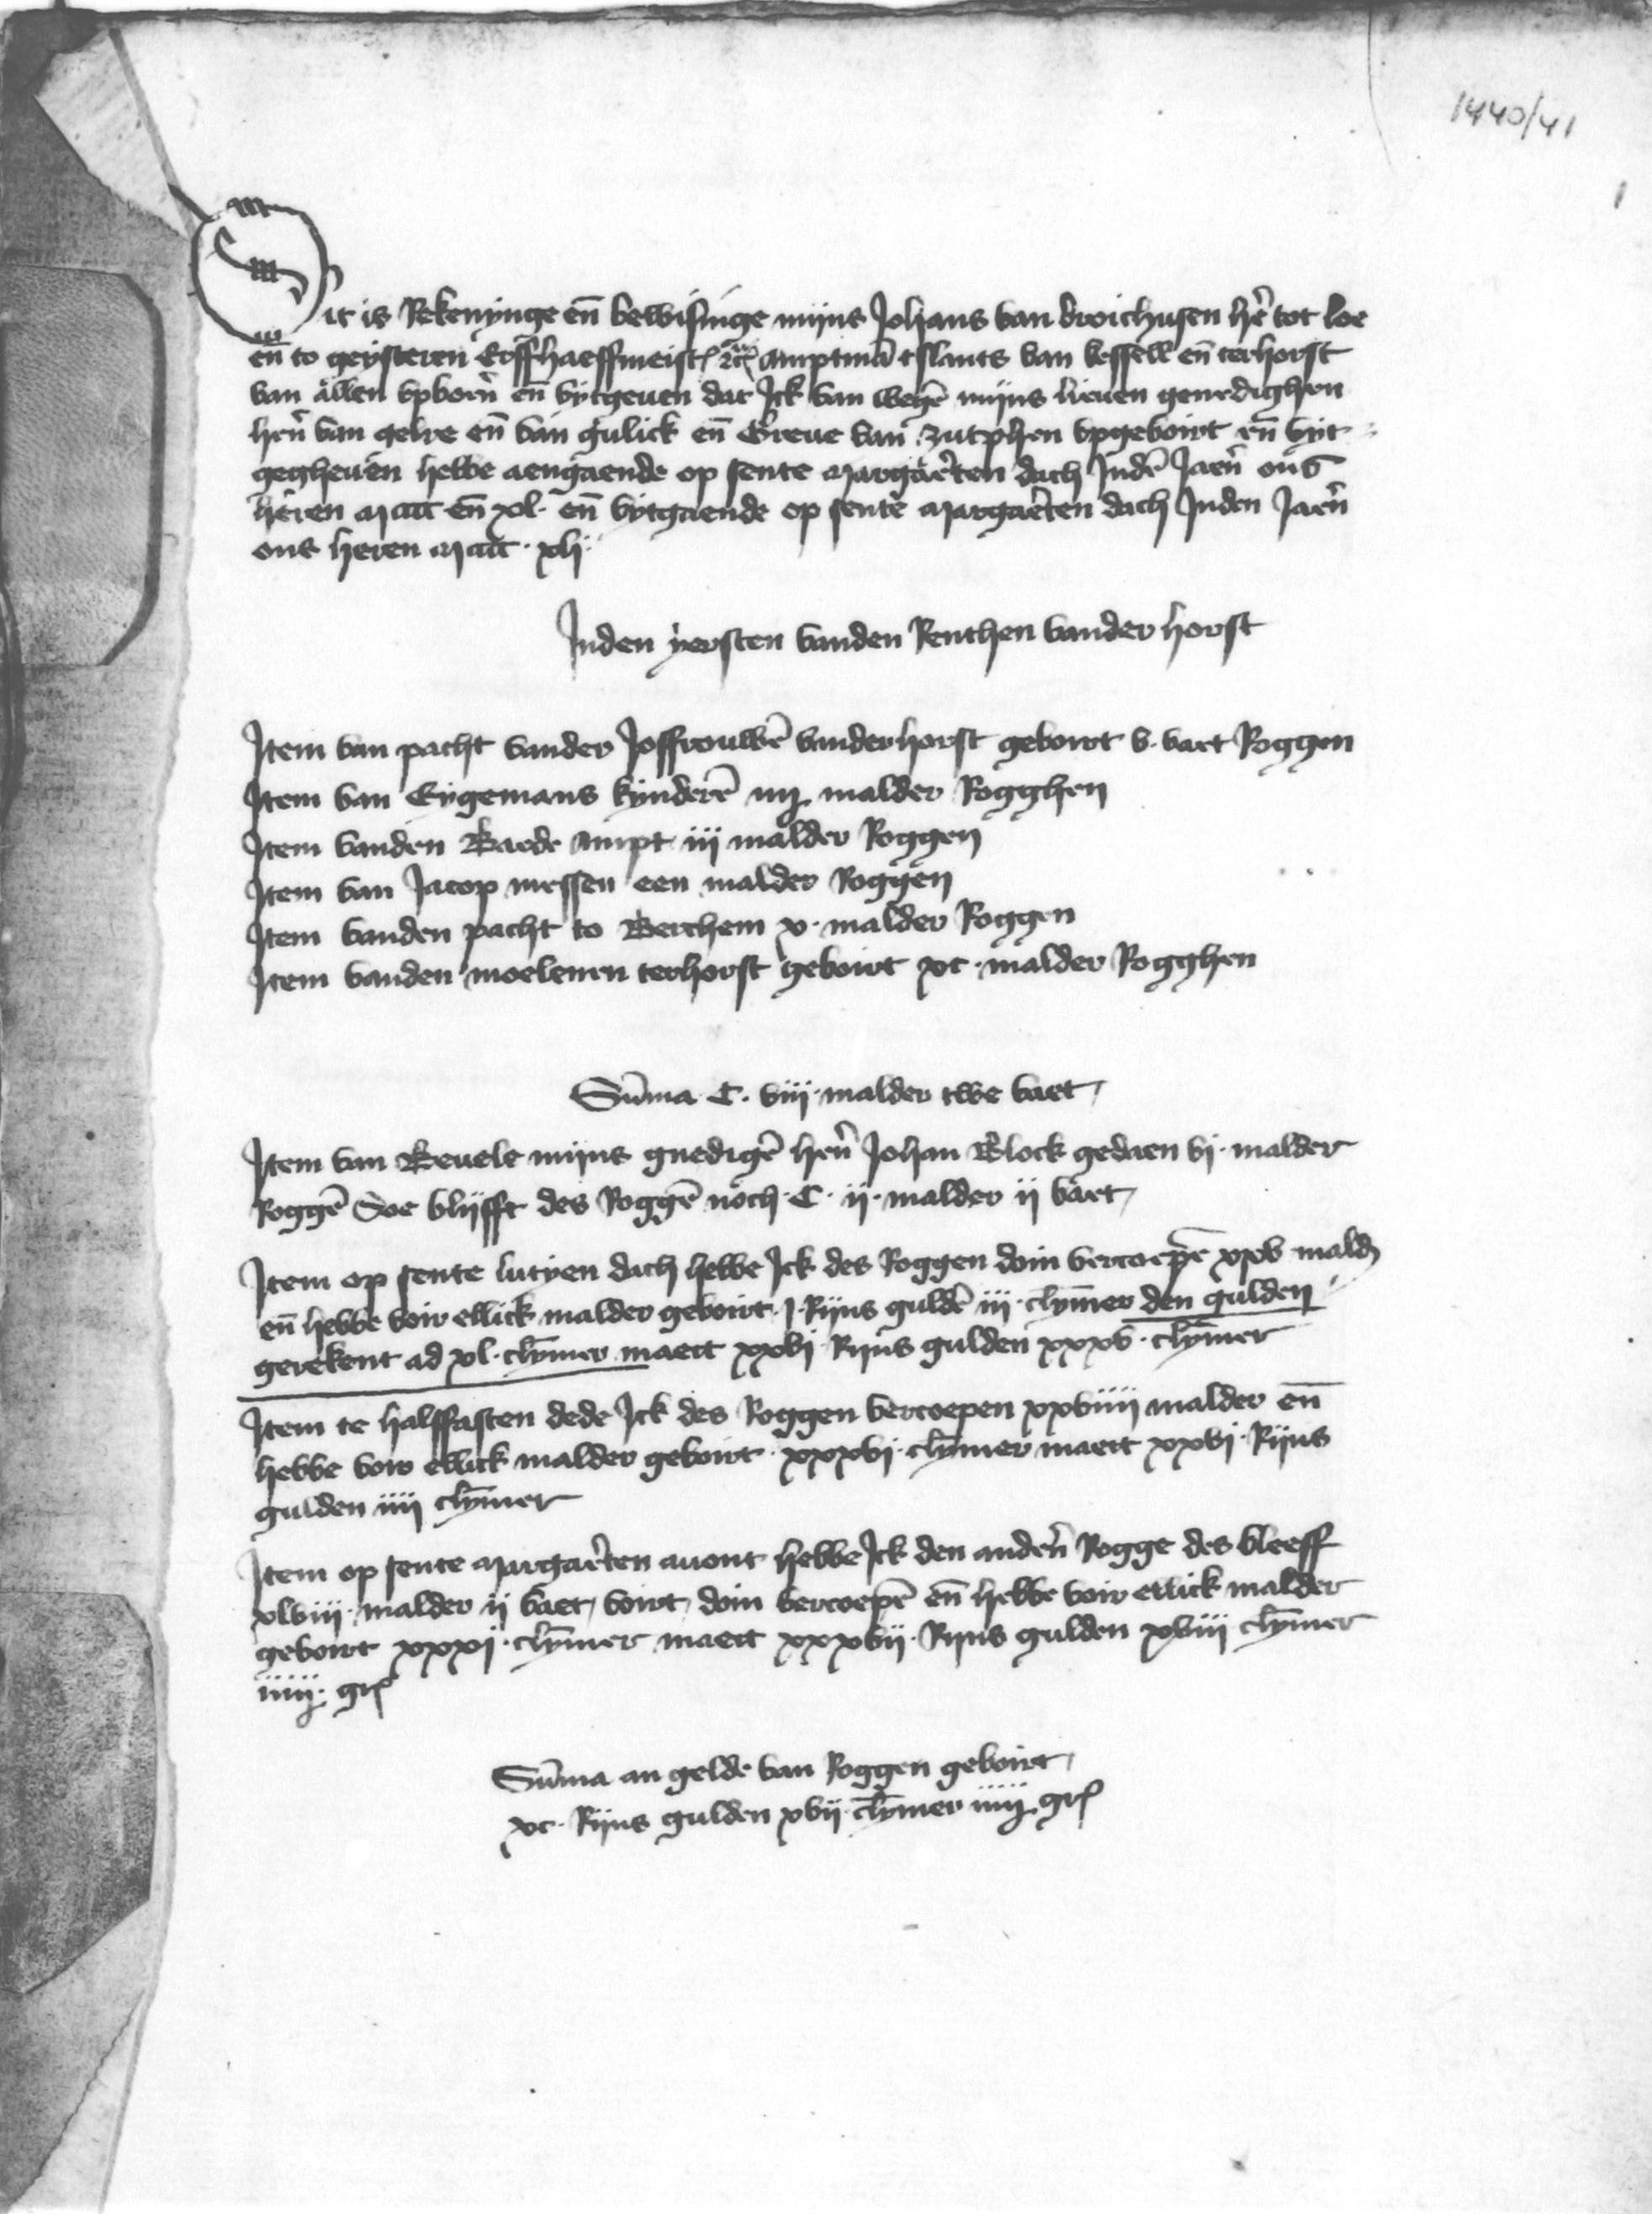 1440/41
1
Dit is Rekenynge en̄ bewisinge mijns Johans van broichusen he͂r tot loe
en̄ to geysteren Erffhaeffmeist͛ etc͛ Amptma̅ tslants van kessell en̄ terhorst
van allen upboe͂rn en̄ uytgeven dat Jck van wege̅ mijns lieven genedighen
he͂rn van gelre en̄ van gulick en̄ Greve van zutphen upgeboirt en̄ uyt
gegheven hebbe aengaende op sente margar͂ten dach Jnde̅ Jae͂rn ons
heren Mcccc en̄ xl. en̄ uytgaende op sente margar͂ten dach Jnden Jae͂rn
ons heren Mcccc. xlj.
Jnden yersten vanden Renthen vander horst
Jtem van pacht vander Joffrouwe̅ vander horst geboirt v. vaet Roggen
Jtem van Eygemans kyndere̅ iiij malder Rogghen
Jtem vanden Baede Ampt iij malder Roggen
Jtem van Jacop messen een malder Roggen
Jtem vanden pacht to Berchem x. malder Roggen
Jtem vanden moelenen terhorst geboirt xc. malder Rogghen
Su̅ma C. viij. malder twe vaet
Jtem van Bevele mijns gnedige̅ he͂rn Johan Block gedaen vj. malder
Rogge̅ Soe blijfft des Rogge̅ noch. C. ij. malder ij vaet
Jtem op sente lucyen dach hebbe Jck des Roggen doin vercoepe̅ xxv mald͛
en̄ hebbe voir ellick malder geboirt. j. Rijns gulde̅ iij. cly̅mer den gulden
gerekent ad xl. cly̅mer maect xxvj Rijns gulden xxxv. cly̅mer
Jtem te halffasten dede Jck des Roggen vercoepen xxviiij malder en̄
hebbe voir ellick malder geboirt. xxxvj. cly̅mer maect xxvj. Rijns
gulden iiij cly̅mer
Jtem op sente margar͂ten avont hebbe Jck den ande͂rn Rogge des bleeff
xlviij. malder ij vaet, voirt, doin vercoepe̅ en̄ hebbe voir ellick malder
geboirt xxxj. cly̅mer maect xxxvij. Rijns gulden xviij cly̅mer
iiij. gr͛
Su̅ma an gelde van Roggen geboirt
xc. Rijns gulden xvij. cly̅mer iiij. gr͛